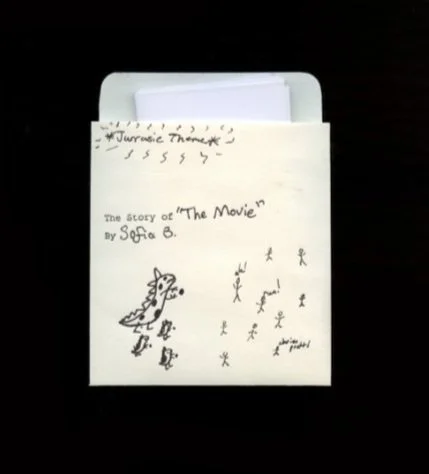 *Jurrasic Theme*
The Story of "The Movie"
By Sofia B.
ah!
run!
chris
pratt!